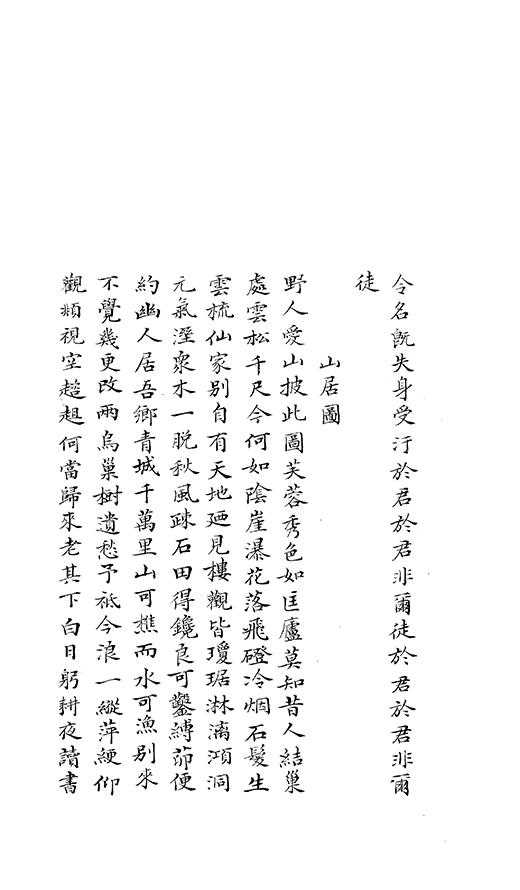 令名旣失身受汙於君於君非爾徒於君於君非爾
徒
山居圖
野人愛山披此圖芙蓉秀色如匡廬莫知昔人結巢
處雲松千尺今何如陰崖瀑花落飛磴冷烟石髮生
雲梳仙家別自有天地廼見樓觀皆瓊琚淋漓澒洞
元氣溼衆木一脫秋風疎石田得鑱良可鑿縛茆便
約幽人居吾鄉青城千萬里山可樵而水可漁別來
不覺幾更改兩烏巢樹遺愁予祗今浪一縱萍綆仰
觀頫視空趦趄何當歸來老其下白日躬耕夜讀書